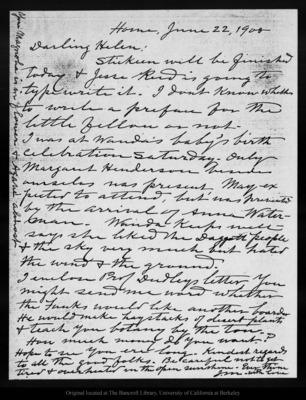 Home, June 22, 1908
Darling Helen:
Stickeen will be finished
today & Jesse Reid is going to
typewrite it. I dont know whether
to write a preface for the
little fellow or not.
I was at Wanda's baby's birth
celebration Saturday. Only
Margaret Henderson besides
ourselves was present. May ex
pected to attend, but was prevented
by the arrival of Anna Water-
man. Wanda Keeps well
says she liked the Daggett people
& the sky very much but hated
the wind & the ground.
I enclose Prof Dudleys letter. You
might send me word whether
the Funks would like another boarder
He would make haystacks of desert plants
& teach you botany by the ton.
How much money do you want?
Hope to see you ere long. Kindest regards
to all the good folks. Be careful not to get
tired & overheated in the open sunshine. Ever thine
with love
Your Magnolia is in
Original located at The Bancroft Library, University of California at Berkeley